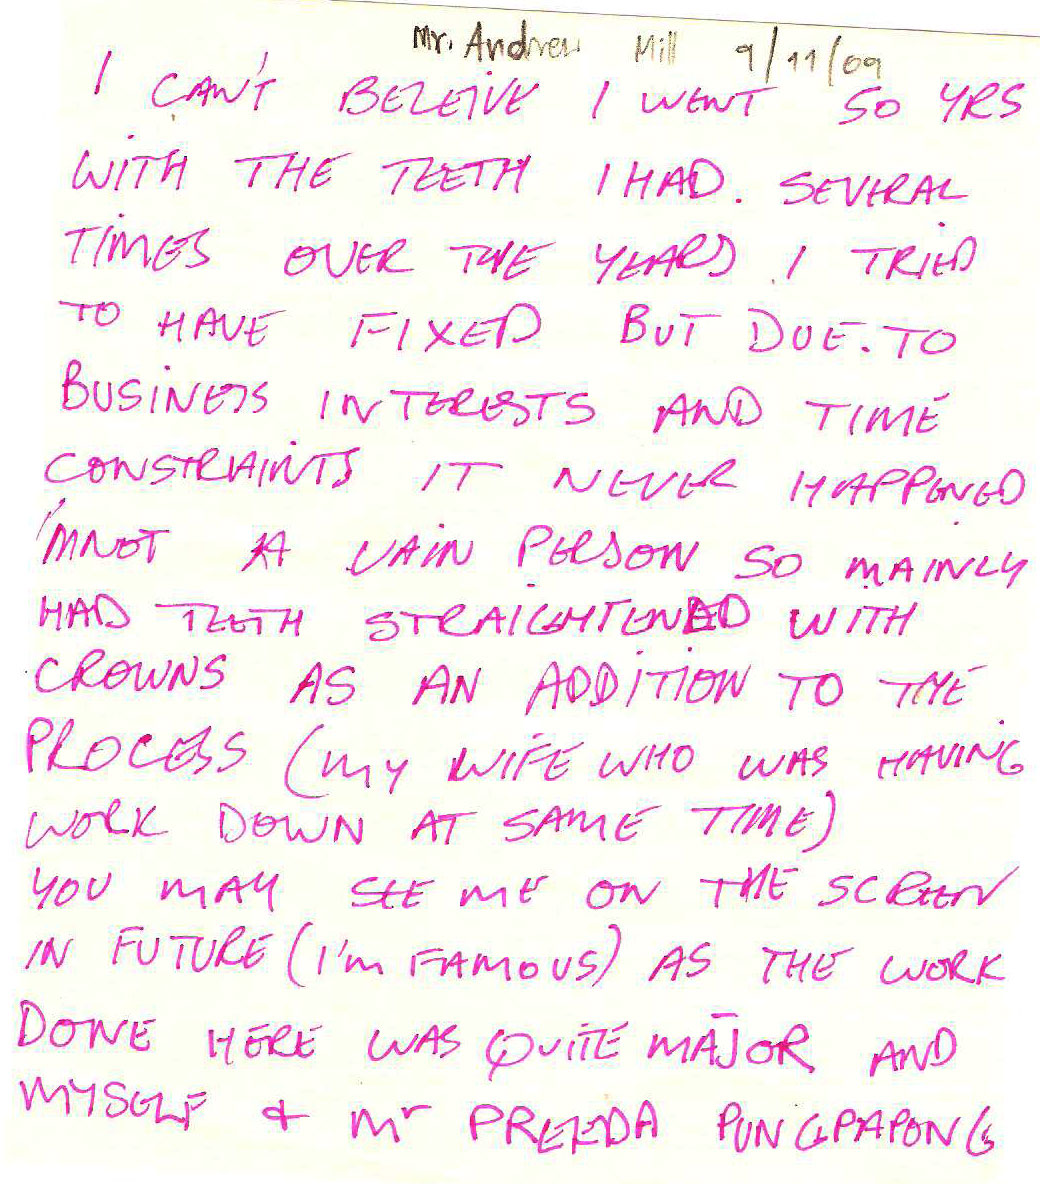 Mr. Andrew Mill 9/11/09
I CAN'T BELEIVE I WENT SO YRS
WITH THE TEETH I HAD. SEVERAL
TIMES OVER THE YEARS I TRIED
TO HAVE FIXED BUT DUE. TO
BUSINESS INTERESTS AND TIME
CONSTRAINTS IT NEVER HAPPENED
I'M NOT A VAIN PERSON SO MAINLY
HAD TEETH STRAIGHTENED WITH
CROWNS AS AN ADDITION TO THE
PROCESS (MY WIFE WHO WAS HAVING
WORK DOWN AT SAME TIME)
YOU MAY SEE ME ON THE SCREEN
IN FUTURE (I'm FAMOUS) AS THE WORK
DONE HERE WAS QUITE MAJOR AND
MYSELF & Mr PREEDA PUNGPAPONG